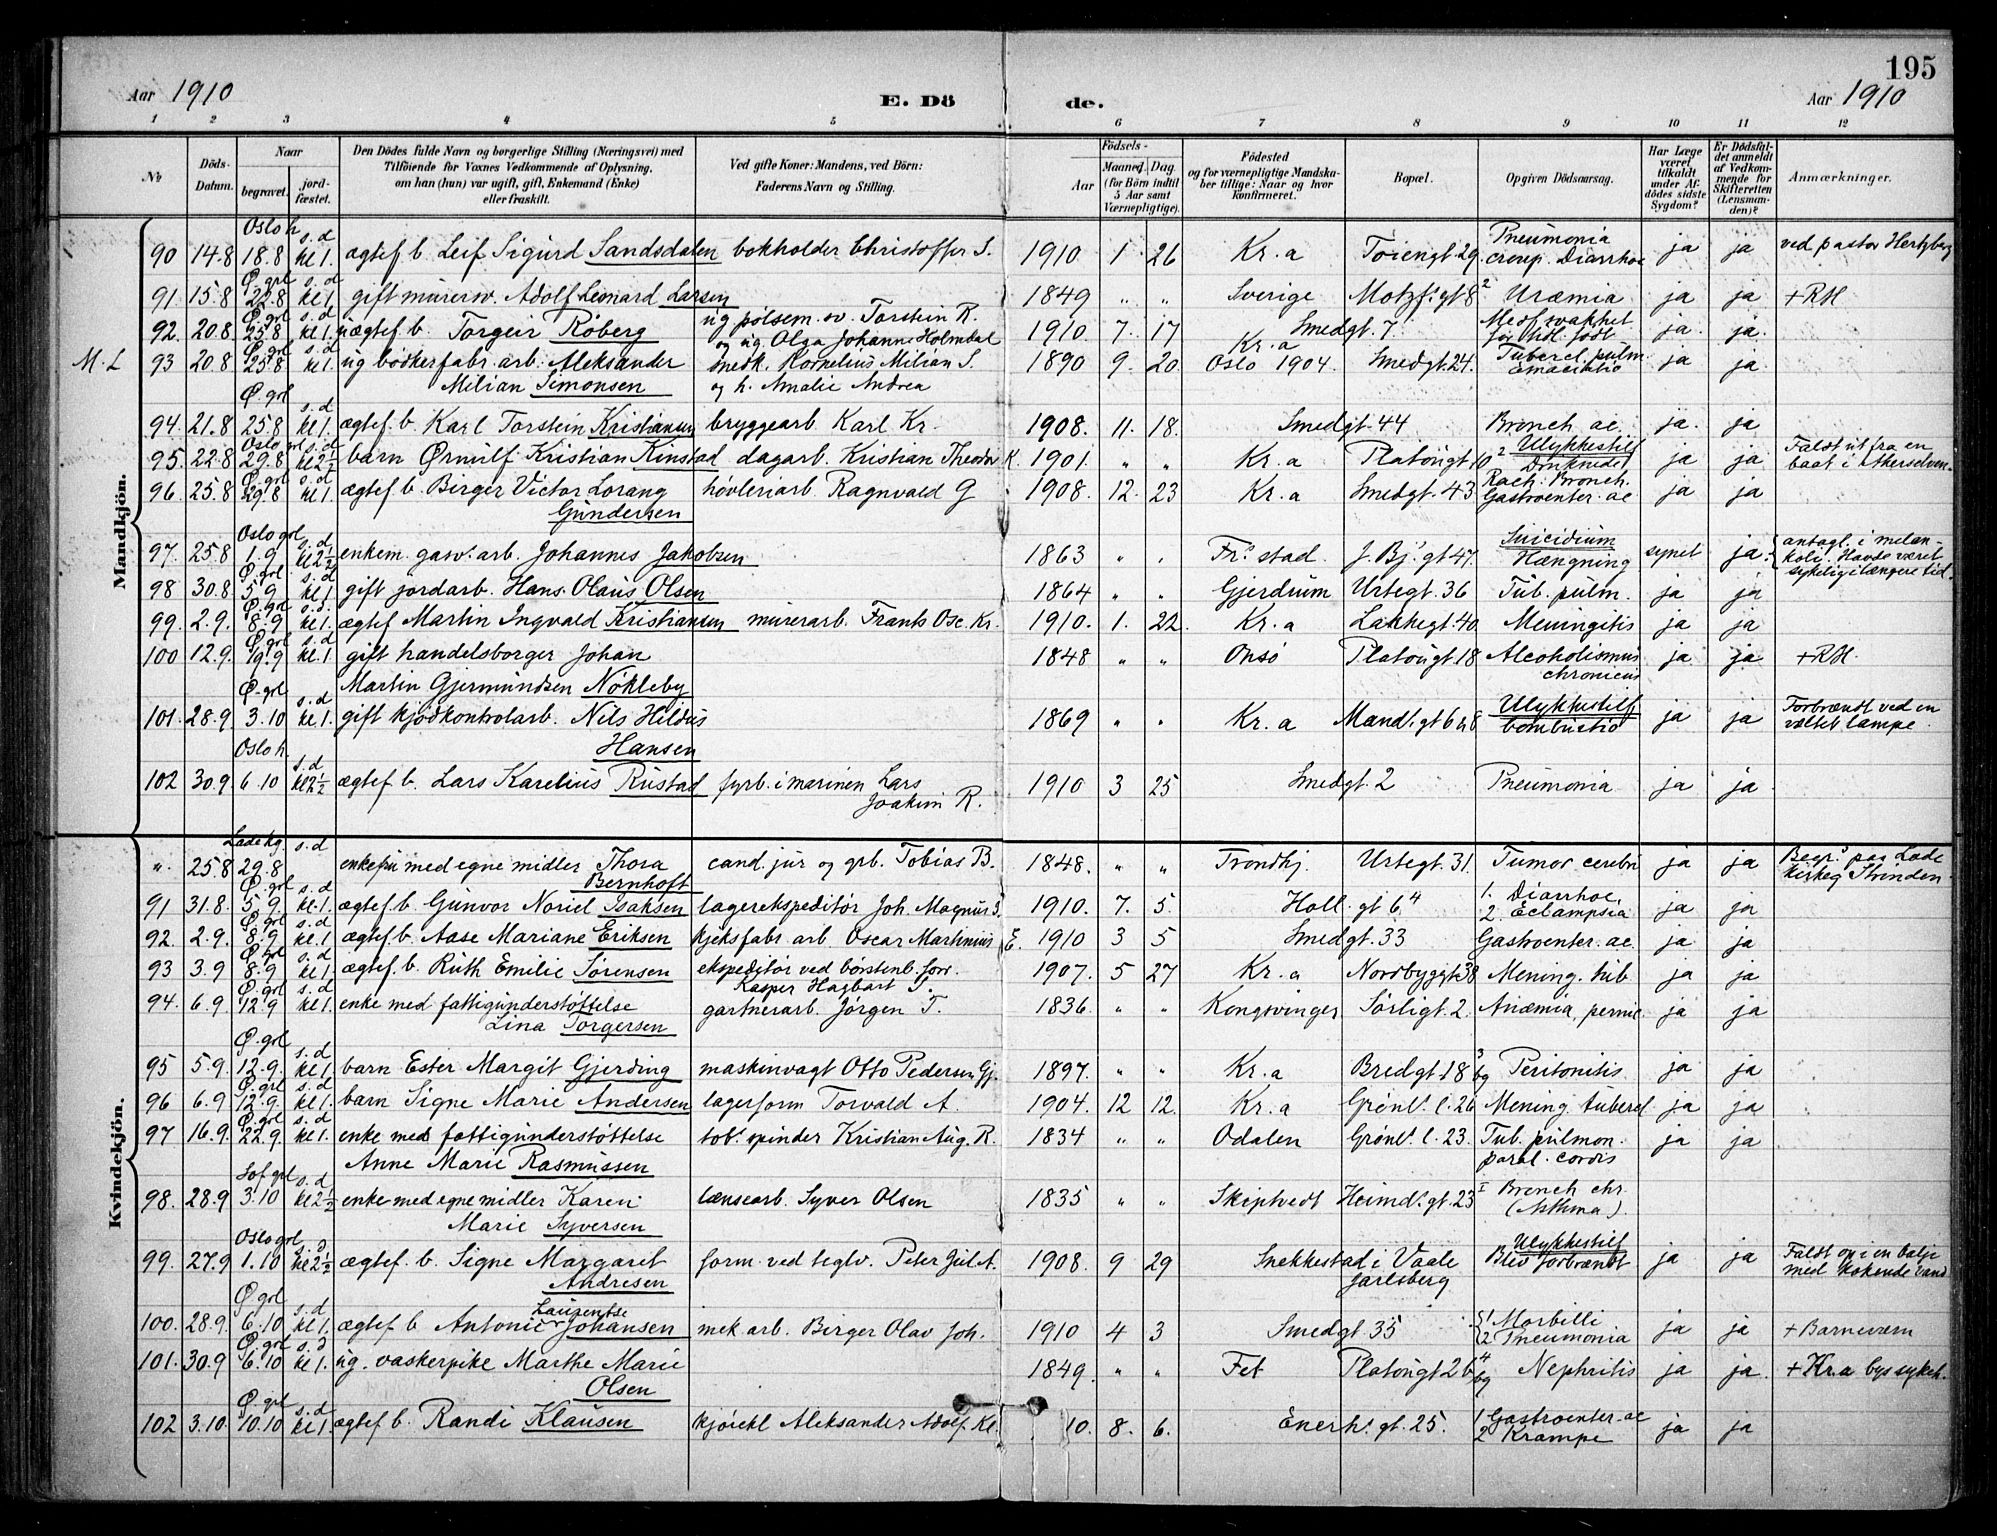 195
Aar 1910
E. Dö de.
Aar 1910
1 2 3 4 5 6 7 8 9 10 11 12
№
Döds-Datum.
Naar begravet. jordfæstet.
Den Dödes fulde Navn og borgerlige Stilling (Næringsvei) med Tilföiende for Voxnes Vedkommende af Oplysning, om han (hun) var ugift, gift, Enkemand (Enke) eller fraskilt.
Ved gifte Koner: Mandens, ved Börn: Faderens Navn og Stilling.
Födsels- Aar Maaned. Dag. (for Börn indtil 5 Aar samt Værnepligtige).
Födested og for værnepligtige Mandskaber tillige: Naar og hvor konfirmeret.
Bopæl.
Opgiven Dödsaarsag.
Har Læge været tilkaldt under Afdödes sidste Sygdom?
Er Dödsfaldet anmeldt af Vedkommende for Skifteretten (Lensmanden)?
Anmærkninger.
Mandkjön.
Oslo h s.d
90 14.8 18.8 kl 1. ægtef b. Leif Sigurd Sandsdalen bokholder Christoffer S. 1910 1 26 Kr.a Töiengt. 29 Pneumonia croup. Diarrhoe ja ja ved pastor Hertzberg
Ø. grl s.d
91 15.8 22.8 kl 1. gift murersv. Adolf Leonard Larsen 1849 " " Sverige Motzf.s gt 8² Uræmia ja ja + RH
Ø. grl s.d
92. 20.8 25.8 kl 1. uægtef b. Torgeir Röberg ug pölsem. sv. Torstein R. og ug. Olga Johanne Holmdal 1910 7. 17 Smedgt. 7 Medf. svakhet ja. ja.
Ø grl s.d
M. L 93 20.8 25.8 kl 1. ug bödkerfabr. arb. Aleksander Milian Simonsen snedk. Kornelius Milian S. og h. Amalie Andrea 1890 9. 20. Kr.a Oslo 1904. Smedgt. 24. Tubercl. pulm. Emaciatio ja ja.
Ø. grl s.d
94. 21.8 25.8 kl 1. ægtef. b. Karl Torstein Kristiansen bryggearb. Karl Kr. 1908. 11. 18. Smedgt. 44 Bronch ac. ja. ja
Oslo grl s.d
95. 22.8 29.8 kl 2½ barn Ørnulf Kristian Kinstad dagarb. Kristian Theodor K. 1901. " " Kr. a Platoûgt 10² Ulykkestilf Druknede ja ja Faldt ut fra en baat i Akerselven
Ø grl s.d
96. 25.8 29.8 kl 1. ægtef b. Birger Victor Lorang Gundersen hövleriarb. Ragnvald G 1908. 12. 23 Kr. a Smedgt. 43 Rach. Bronch. Gastroenter. ac ja ja
Oslo grl s.d
97. 25.8 1.9 kl 2½ enkem. gasv. arb. Johannes Jakobsen 1863 " " Fr.stad J. Bj.s gt 47. Suicidium Hængning synet ja antagl. i melankoli. Havde været sykelig i længere tid.
Ø. grl s.d
98 30.8 5.9 kl 1 gift jordarb. Hans Olaus Olsen 1864 " " Gjerdrum Urtegt. 36 Tub. pulm. ja ja
Ø. grl s.d.
99. 2.9. 8.9 kl 1. ægtef Martin Ingvald Kristiansen murerarb. Frants Osc. Kr. 1910. 1. 22. Kr.a Lakkegt. 40 Meningitis ja ja
Ø grl s.d
100 12.9. 19.9 kl. 1 gift handelsborger Johan Martin Gjermundsen Nökleby 1848 " " Onsö Platoûgt 18 Alcoholismus chronicus ja ja + RH.
Ø. grl s.d
101. 28.9. 3.10 kl 1. gift kjödkontrolarb. Nils Hildus Hansen 1869 " " Kr. a Mandl.s gt 6 Ulykkestilf Combustio ja ja Forbrændt ved en væltet lampe.
Oslo h. s.d
102 30.9. 6.10 kl 2½ ægtef b. Lars Karelius Rustad fyrb. i marinen Lars Joakim R. 1910 3 25 Smedgt. 2 Pneumonia ja ja
Kvindekjön.
Lade kg. s.d
". 25.8 29.8 enkefru med egne midler Thora Bernhoft cand. jur og grb. Tobias B. 1848. " " Trondhj. Urtegt. 31. Tumor cerebri ja ja Begr.s paa Lade kirkeg Strinden
Ø grl s.d
91 31.8. 5.9 kl 1. ægtef b. Gunvor Noriel Isaksen lagerekspeditör Joh. Magnus I. 1910. 7. 5. Holl. gt 6⁴ 1. Diarrhoe, 2 Eclampsia ja ja
Ø grl s.d
92. 2.9. 8.9 kl. 1 ægtef b. Aase Mariane Eriksen kjeksfabr. arb Oscar Martinius E. 1910 3 5 Smedgt. 33 Gastroenter. ac. ja ja
Ø grl s.d
93 3.9 8.9 kl 1. ægtef b. Ruth Emilie Sörensen ekspeditör ved börstenb. forr. Kasper Hagbart S. 1907. 5 27 Kr. a Nordbyggt. 38 Mening. tub ja ja
Ø. grl s.d
94. 6.9. 12.9 kl 1. enke med fattigunderstöttelse Lina Torgersen gartnerarb. Jörgen T. 1836. " " Kongsvinger Sörligt. 2. Anæmia, pernic ja ja
Ø. grl s.d
95 5.9. 12.9. kl 1. barn Ester Margit Gjerding maskinvagt Otto Pedersen Gj. 1897. " " Kr. a Bredgt. 18 ³ bg Peritonitis ja ja
Ø. grl s.d
96 6.9 12.9. kl 1. barn Signe Marie Andersen lagerform Torvald A. 1904. 12 12. Kr. a Grönl.s l. 26 Mening. tubercl ja ja
Ø. grl s.d
97 16.9. 22.9 kl 1. enke med fattigunderstöttelse Anne Marie Rasmussen tob. spinder Kristian Aug. R. 1834 " " Odalen Grönl.s l. 23. Tub. pulmon. paral. cordis ja ja
Sof grl s.d
98. 28.9 3.10 kl 2½ enke med egne midler Karen Marie Syversen lænsearb. Syver Olsen 1835 " " Skiptvedt Heimd.s gt. 23 I Bronch chr. (Asthma).
Oslo grl s.d
99. 27.9 1.10 kl 2½ ægtef. b. Signe Margaret Andresen form ved teglv. Peter Jul. A. 1908. 9 29 Snekkestad i Vaale Jarlsberg Ulykkestilf Blev forbrændt ja ja Faldt op i en balje med kokende vand
Ø grl s.d
100. 28.9. 6.10 kl 1. ægtef b Antonie Laurentse Johansen mek arb. Birger Olav Joh. 1910 4 3 Smedgt 35 1 Morbilli 2 Pneumonia ja ja + Barneværn
Ø. grl s.d
101. 30.9 6.10 kl 1. ug. vaskerpike Marthe Marie Olsen 1849. " " Fet Platoûgt 26 ⁴ bg Nephritis ja ja + Kr.a bys sykeh.
Ø. grl s.d
102 3.10. 10.10 kl 1 ægtef b. Randi Klausen kjörekl Aleksander Adolf Kl. 10. 8. 6. Enerh.s gt. 25. 1 Gastroenter. ac 2 Krampe ja ja